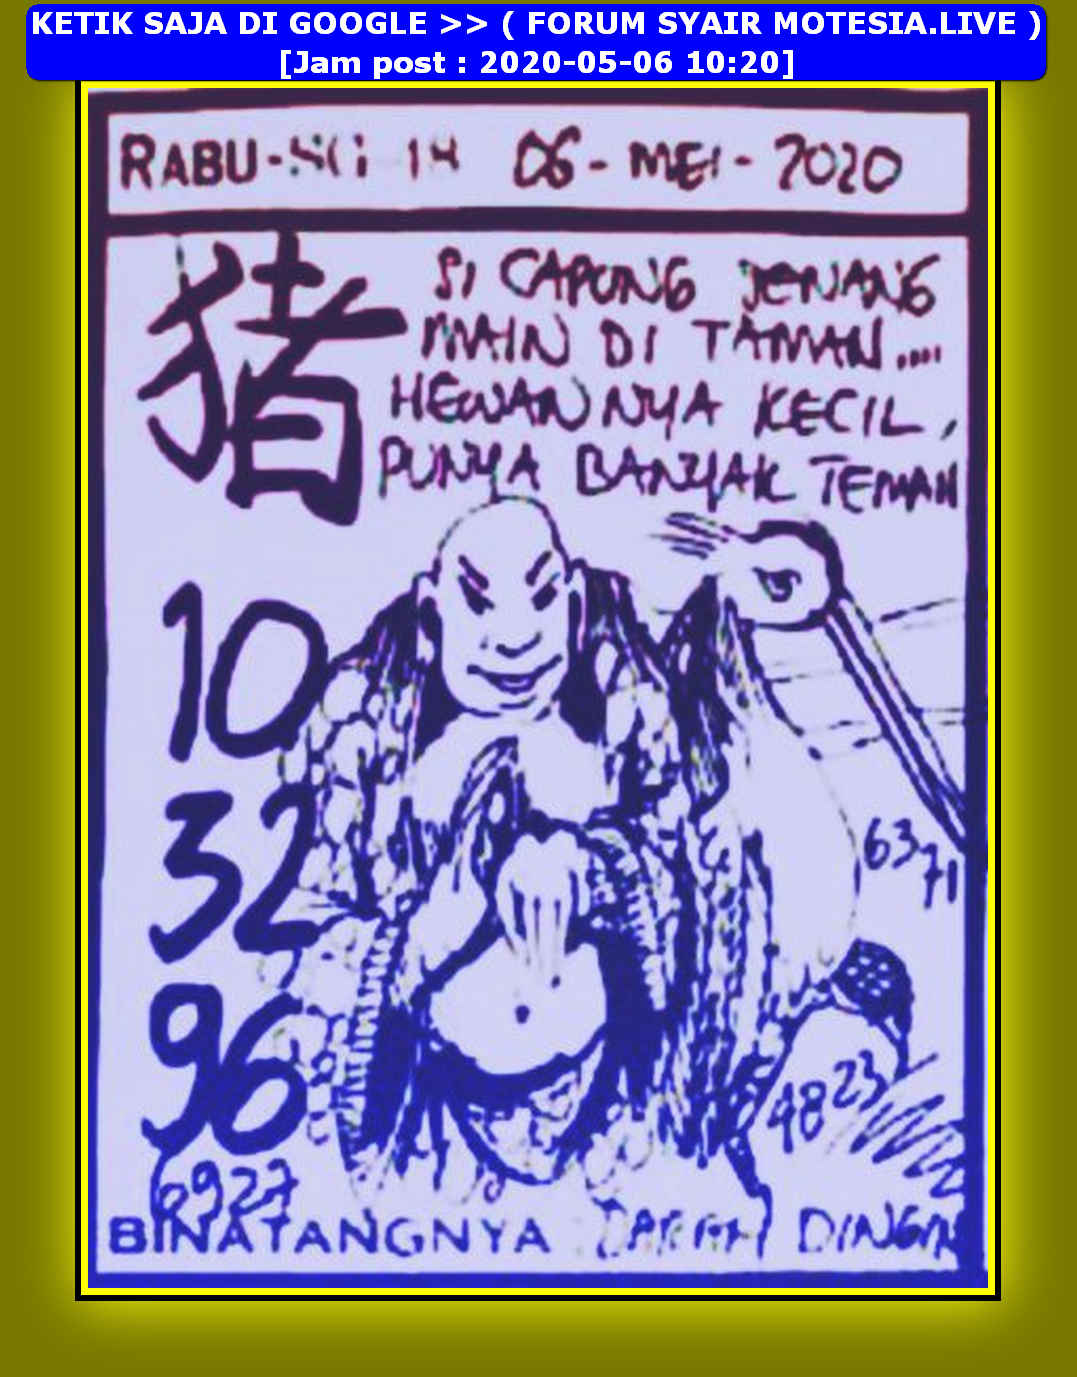 KETIK SAJA DI GOOGLE >> ( FORUM SYAIR MOTESIA.LIVE )
[Jam post : 2020-05-06 10:20]
RABU - 06 - MEI - 2020
猪
SI CAPUNG JENANG
MAIN DI TAMAN....
HEWANNYA KECIL,
PUNYA BANYAK TEMAN
10
32
96
63
71
48 23
6927
BINATANGNYA